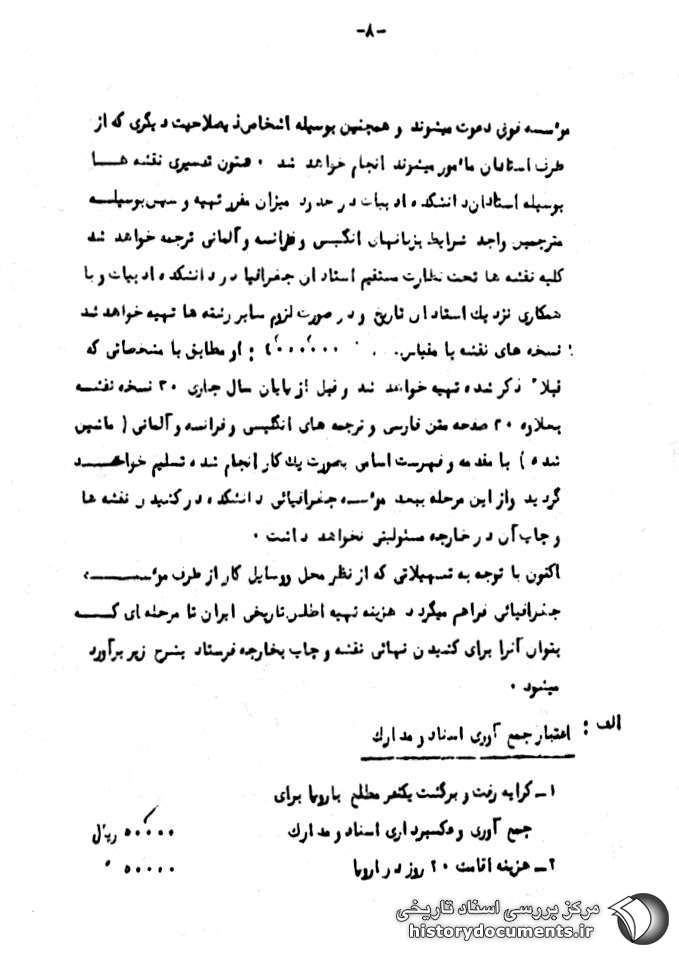 -۸-
موسسه فوق دعوت میشوند و همچنین بوسیله اشخاص ذیصلاحیت دیگری که از
طرف استادان مأمور میشوند انجام خواهد شد . متون تفسیری نقشه ها
بوسیله استادان دانشکده ادبیات در حدود میزان مقرر تهیه و سپس بوسیله
مترجمین واجد شرایط بزبانهای انگلیسی و فرانسه و آلمانی ترجمه خواهد شد
کلیه نقشه ها تحت نظارت مستقیم استادان جغرافیا در دانشکده ادبیات و با
همکاری نزدیک استادان تاریخ و در صورت لزوم سایر رشته ها تهیه خواهد شد
نسخه های نقشه با مقیاس او مطابق با مشخصاتی که
قبلا" ذکر شده تهیه خواهد شد و قبل از پایان سال جاری ۲۰ نسخه نقشه
بعلاوه ۲۰ صفحه متن فارسی و ترجمه های انگلیسی و فرانسه و آلمانی ( ماشین
شده ) با مقدمه و فهرست اسامی بصورت یک کار انجام شده تسلیم خواهد
گردید و از این مرحله ببعد موسسه جغرافیائی دانشکده در کشیدن نقشه ها
و چاپ آن در خارجه مسئولیتی نخواهد داشت .
اکنون با توجه به تسهیلاتی که از نظر محل و وسایل کار از طرف موسسه
جغرافیائی فراهم میگردد هزینه تهیه اطلس تاریخی ایران تا مرحله ای که
بتوان آنرا برای کشیدن نهائی نقشه و چاپ بخارجه فرستاد بشرح زیر برآورد
میشود .
الف : اعتبار جمع آوری اسناد و مدارک
۱- کرایه رفت و برگشت یکنفر مطلع باروپا برای
جمع آوری و عکسبرداری اسناد و مدارک ۵۰۰۰۰ ریال
۲- هزینه اقامت ۲۰ روز در اروپا ۵۰۰۰۰ "
مرکز بررسی اسناد تاریخی
historydocuments.ir